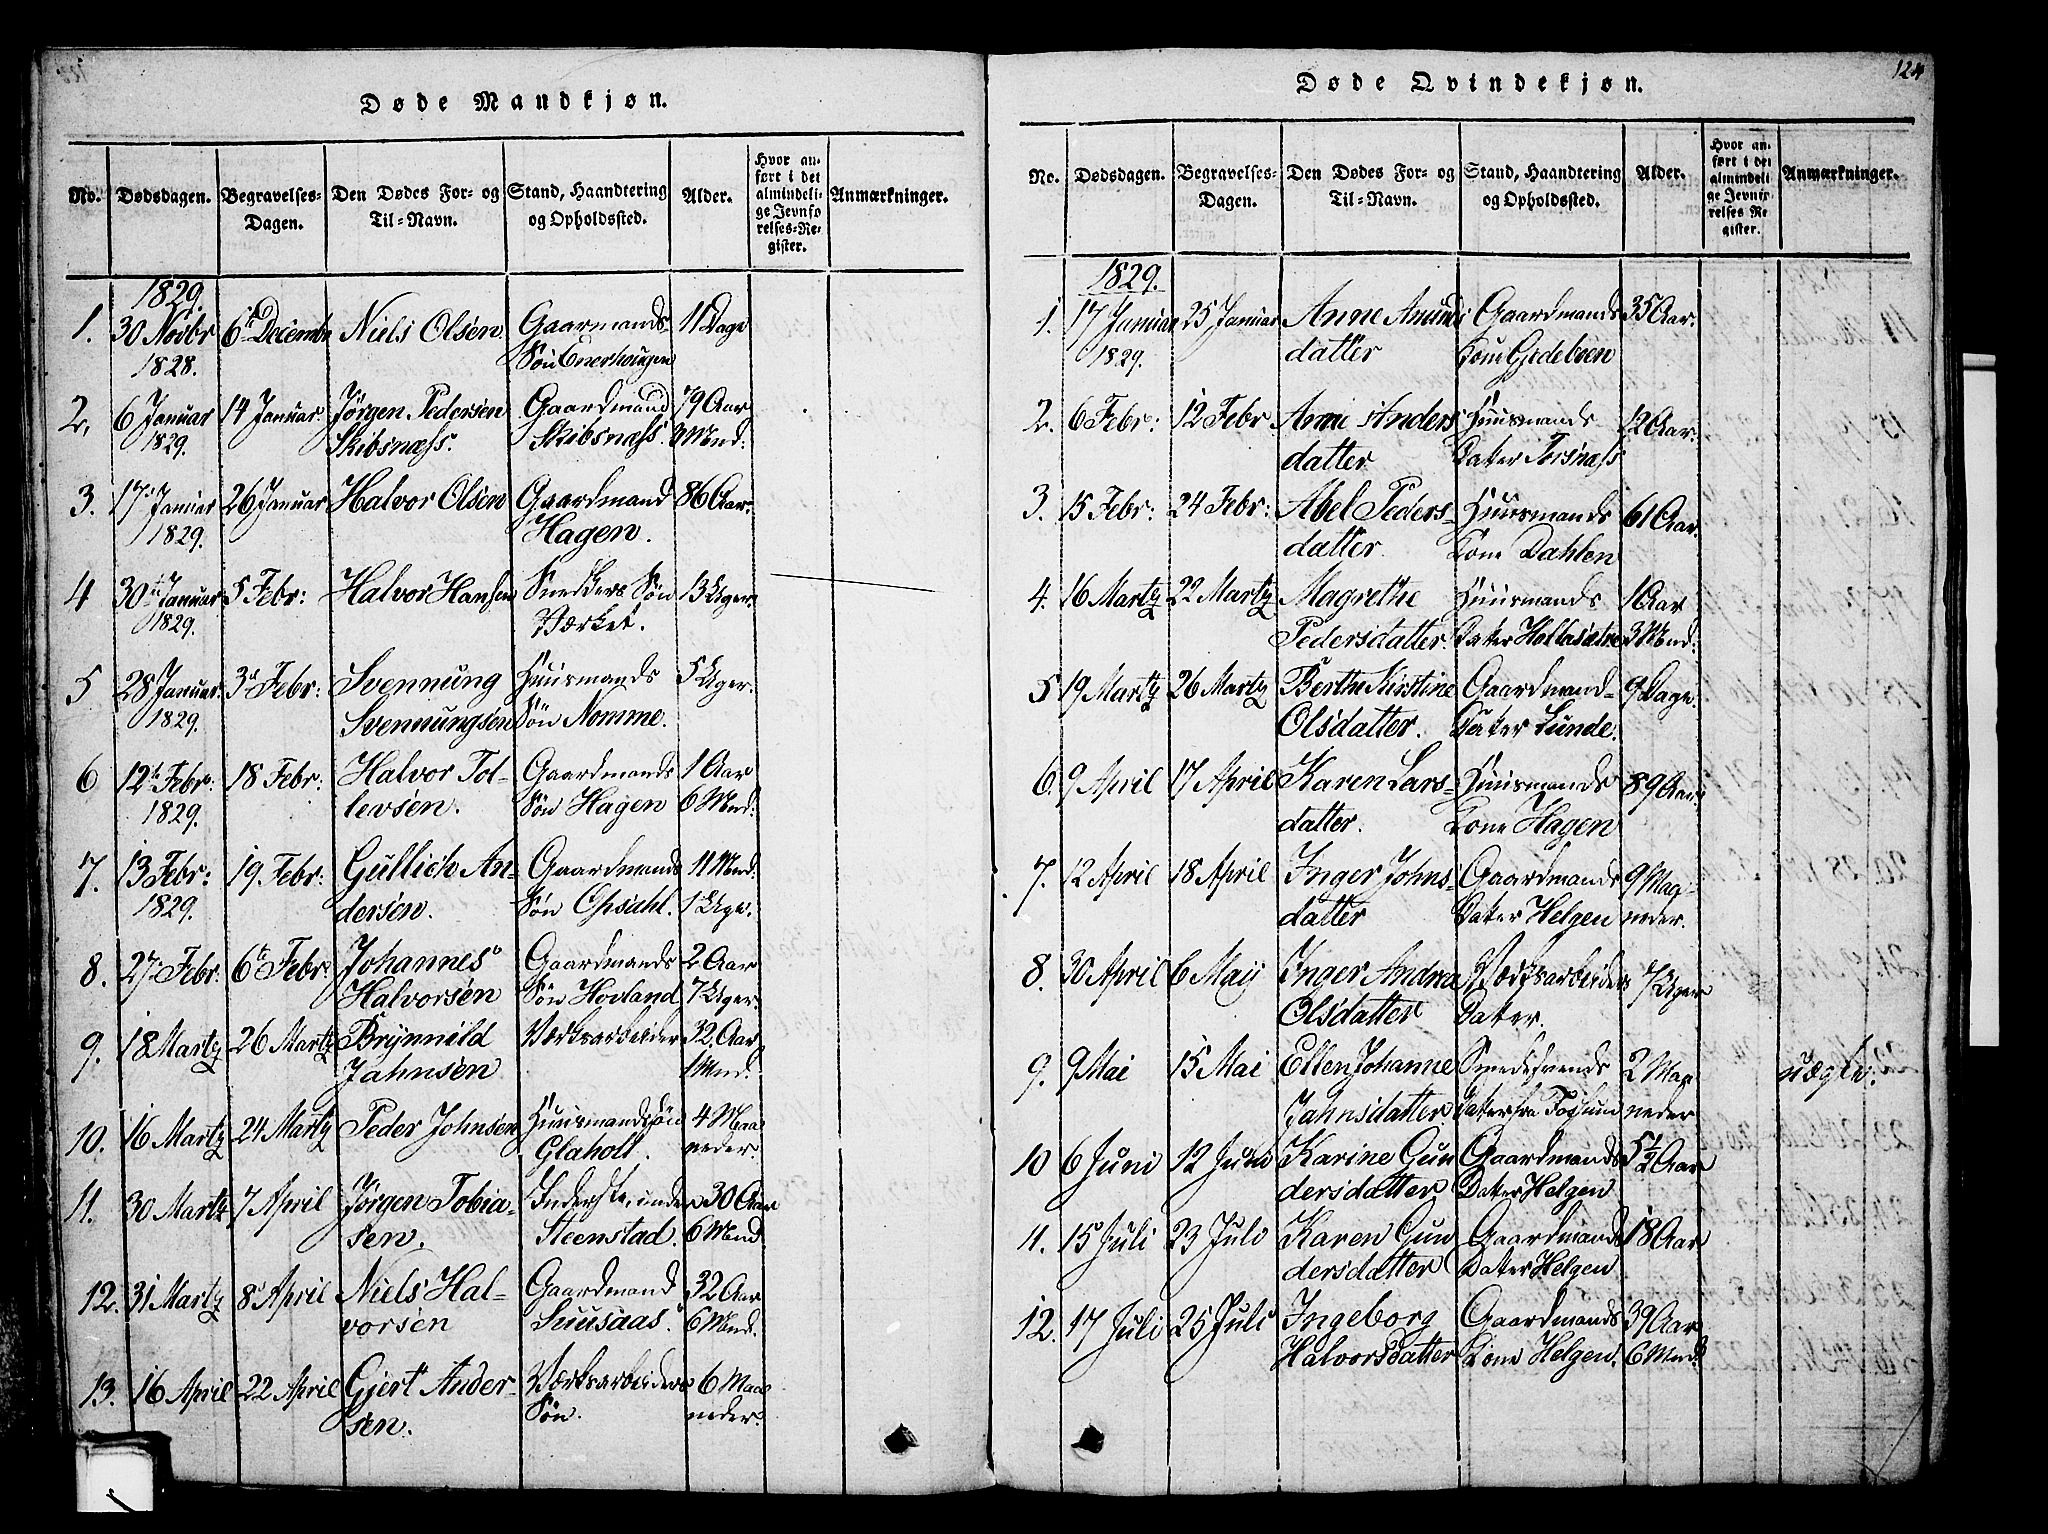 Døde Mandkjøn.
No. Dødsdagen. Begravelses-Dagen. Den Dødes For- og Til-Navn. Stand, Haandtering og Opholdssted. Alder. Hvor anført i det almindelige Jevnførelses-Register. Anmærkninger.
1829.
1. 30 Novbr 6te Decembr Niels Olsen Gaarmands- 11 Dage
1828. Søn
2. 6 Januar 14 Januar. Jørgen Pedersen Gaardmand 79 Aar
1829. Skibsnæss. Skibsnæss. 9 Mnd.
3. 17 Januar 26 Januar Halvor Olsen Gaardmand 86 Aar.
1829. Hagen.
4 30te Januar 5 Febr: Halvor Hansen Snedkers Søn 13 Uger.
1829. Værket.
5 28 Januar. 3d Febr: Svennung Huusmands 5 Uger.
1829. Svennungsen Søn Nomme.
6 12te Febr: 18 Febr: Halvor Tol- Gaardmands 1 Aar
1829. levsen. Søn Hagen 6 Mnd.
7. 13 Febr: 19. Febr: Gullich An- Gaardmands 11 Mnd.
1829. dersen. Søn Opsahl. 1 Uge.
8. 27 Febr. 6te Febr. Johannes Gaardmands 2 Aar
Halvorsen Søn Hovland 7 Uger.
9. 18 Marty 26 Marty Brynnild Værksarbeider 32. Aar
Jahnsen 1 Mnd.
10. 16 Marty 24 Marty Peder Johnsen Huusmandssøn 4 Maa
Glaholt. neder.
11. 30 Marty 7 April Jørgen Tobia- Inderste under 30 Aar
sen. Steenstad. 6 Mnd.
12. 31 Marty 8 April Niels Hal- Gaardmand 32 Aar
vorsen Suusaas. 6 Mnd.
13. 16 April 22 April Gjert Ander- Værksarbeiders 6 Maa
sen. Søn. neder.
124
Døde Qvindekjøn.
No. Dødsdagen. Begravelses-Dagen. Den Dødes For- og Til-Navn. Stand, Haandtering og Opholdssted. Alder. Hvor anført i det almindelige Jevnførelses Register. Anmærkninger.
1829.
1. 17 Januar 25 Januar Anne Amunds Gaardmands 35 Aar.
1829. datter Kone Gedeboen
2. 6 Febr: 12 Febr Anne Anders Huusmands 12 Aar.
datter Datter Torsnæss
3. 15 Febr: 24 Febr: Abel Peders- Huusmands 61 Aar.
datter. Kone Dahlen
4. 16 Marty 22 Marty Magrethe Huusmands 1 Aar
Pedersdatter. Datter 3 Mnd.
5 19 Marty 26 Marty Berthe Kirstine Gaardmand- 9 Dage.
Olsdatter. Datter Lunde.
6. 9 April 17 April Karen Lars- Huusmands 89 Aar.
datter. Kone Hagen
7. 12 April 18 April Inger Johns- Gaardmands 9 Maa-
datter Datter Helgen neder.
8. 30 April 6 Maij Inger Andrea Værksarbeiders 7 Uger
Olsdatter Datter.
9. 9 Mai 15 Mai Ellen Johanne Smedsvends 2 Maa uægte.
Jahnsdatter. Datter fra Fossum neder
10 6 Juni 12 Juni Karine Gun Gaardmands 5 1/2 Aar
dersdatter Datter Helgen
11. 15 Juli 23 Juli Karen Gun Gaardmands 18 Aar
dersdatter Datter Helgen
12. 17 Juli 25 Juli Ingeborg Gaardmands 39 Aar
Halvorsdatter Kone Helgen. 6 Mnd.